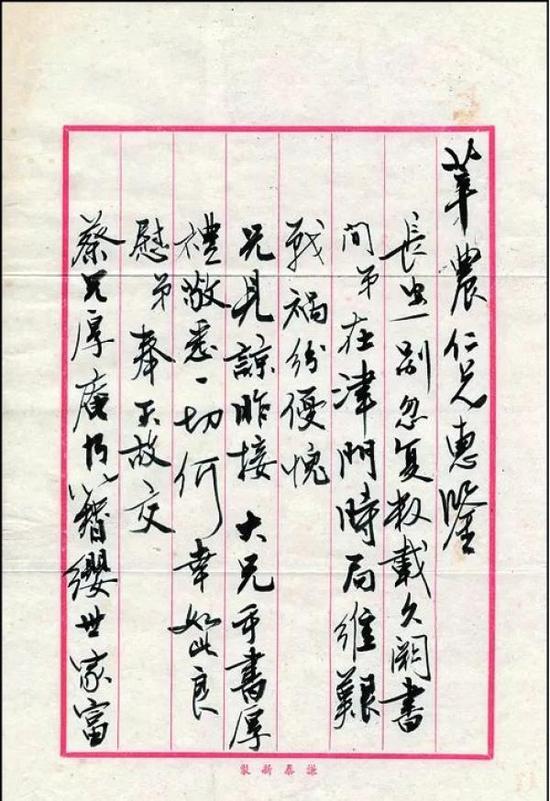 農仁兄惠鑒
長一別忽复数載久闕書
間弟在津門時局維艱
戰禍紛愧
兄見諒昨接 大兄手書厚
禮敬悉一切何幸如此良
慰弟奉天故交
蔡兄厚庵乃簪纓世家富
謙泰新製